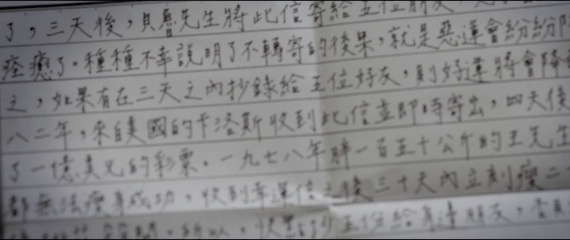 了，三天後，貝魯先生將此信寄給五位朋友，
痊癒了。種種不幸說明了不轉寄的後果，就是惡運會紛紛
之，如果有在三天之內抄錄給五位好友，則好運將會降
八二年，來自美國的卡洛斯收到此信立即時寄出，四天後
了一億美元的彩票。一九七八年胖一百五十公斤的王先生
都無法瘦身成功，收到幸運信之後三十天內立刻瘦二
所以，快點抄五份給身邊朋友，否則